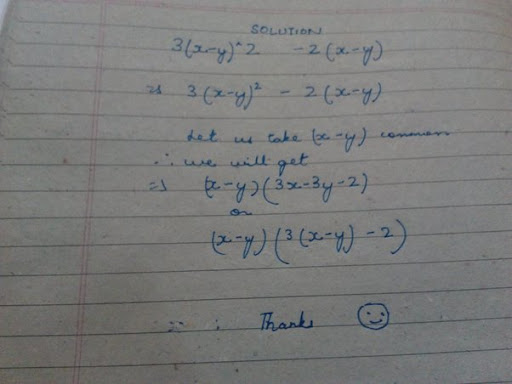 SOLUTION
3(x-y)^2 -2(x-y)
⇒ 3(x-y)² - 2(x-y)
Let us take (x-y) common
∴ we will get
⇒ (x-y)(3x-3y-2)
or
(x-y)(3(x-y)-2)
Thanks